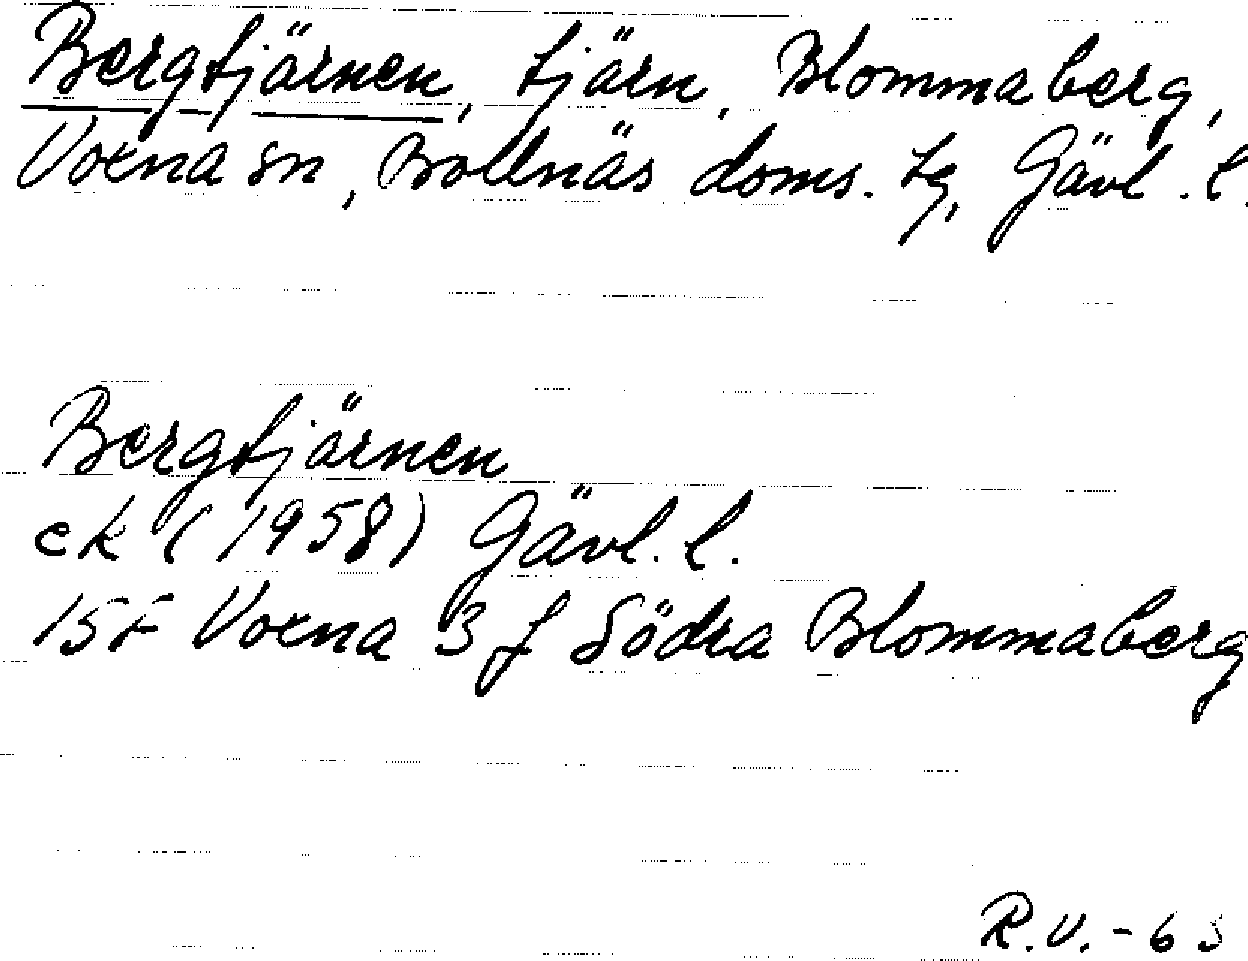 Bergtjärnen, tjärn, Blommaberg,
Voxna sn, Bollnäs doms. tg, Gävl. l.
Bergtjärnen
ek (1958) Gävl. l.
15F Voxna 3 f Södra Blommaberg
R.V. - 63